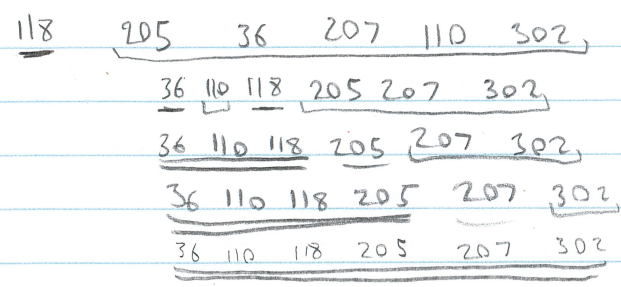 118 205 36 207 110 302
36 110 118 205 207 302
36 110 118 205 207 302
36 110 118 205 207 302
36 110 118 205 207 302